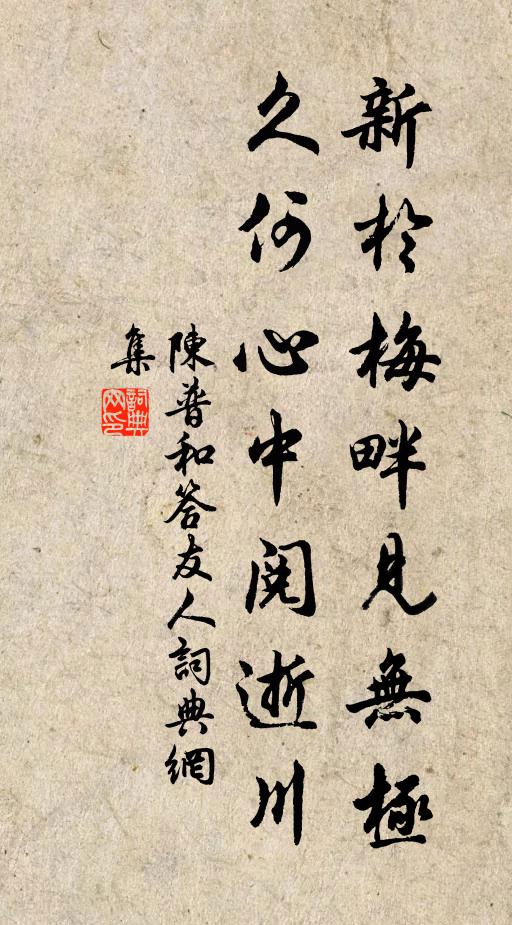 新於梅畔見無極
久何心中閱逝川
陳普和答友人詞典網
集
詞典網印